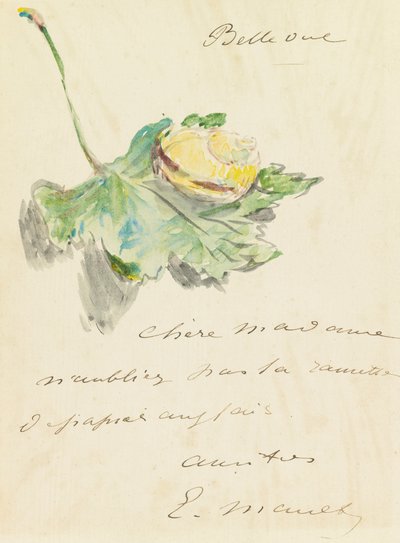 Bellevue
chère madame
n'oubliez pas la ramette
de papier anglais.
amitiés
E. Manet